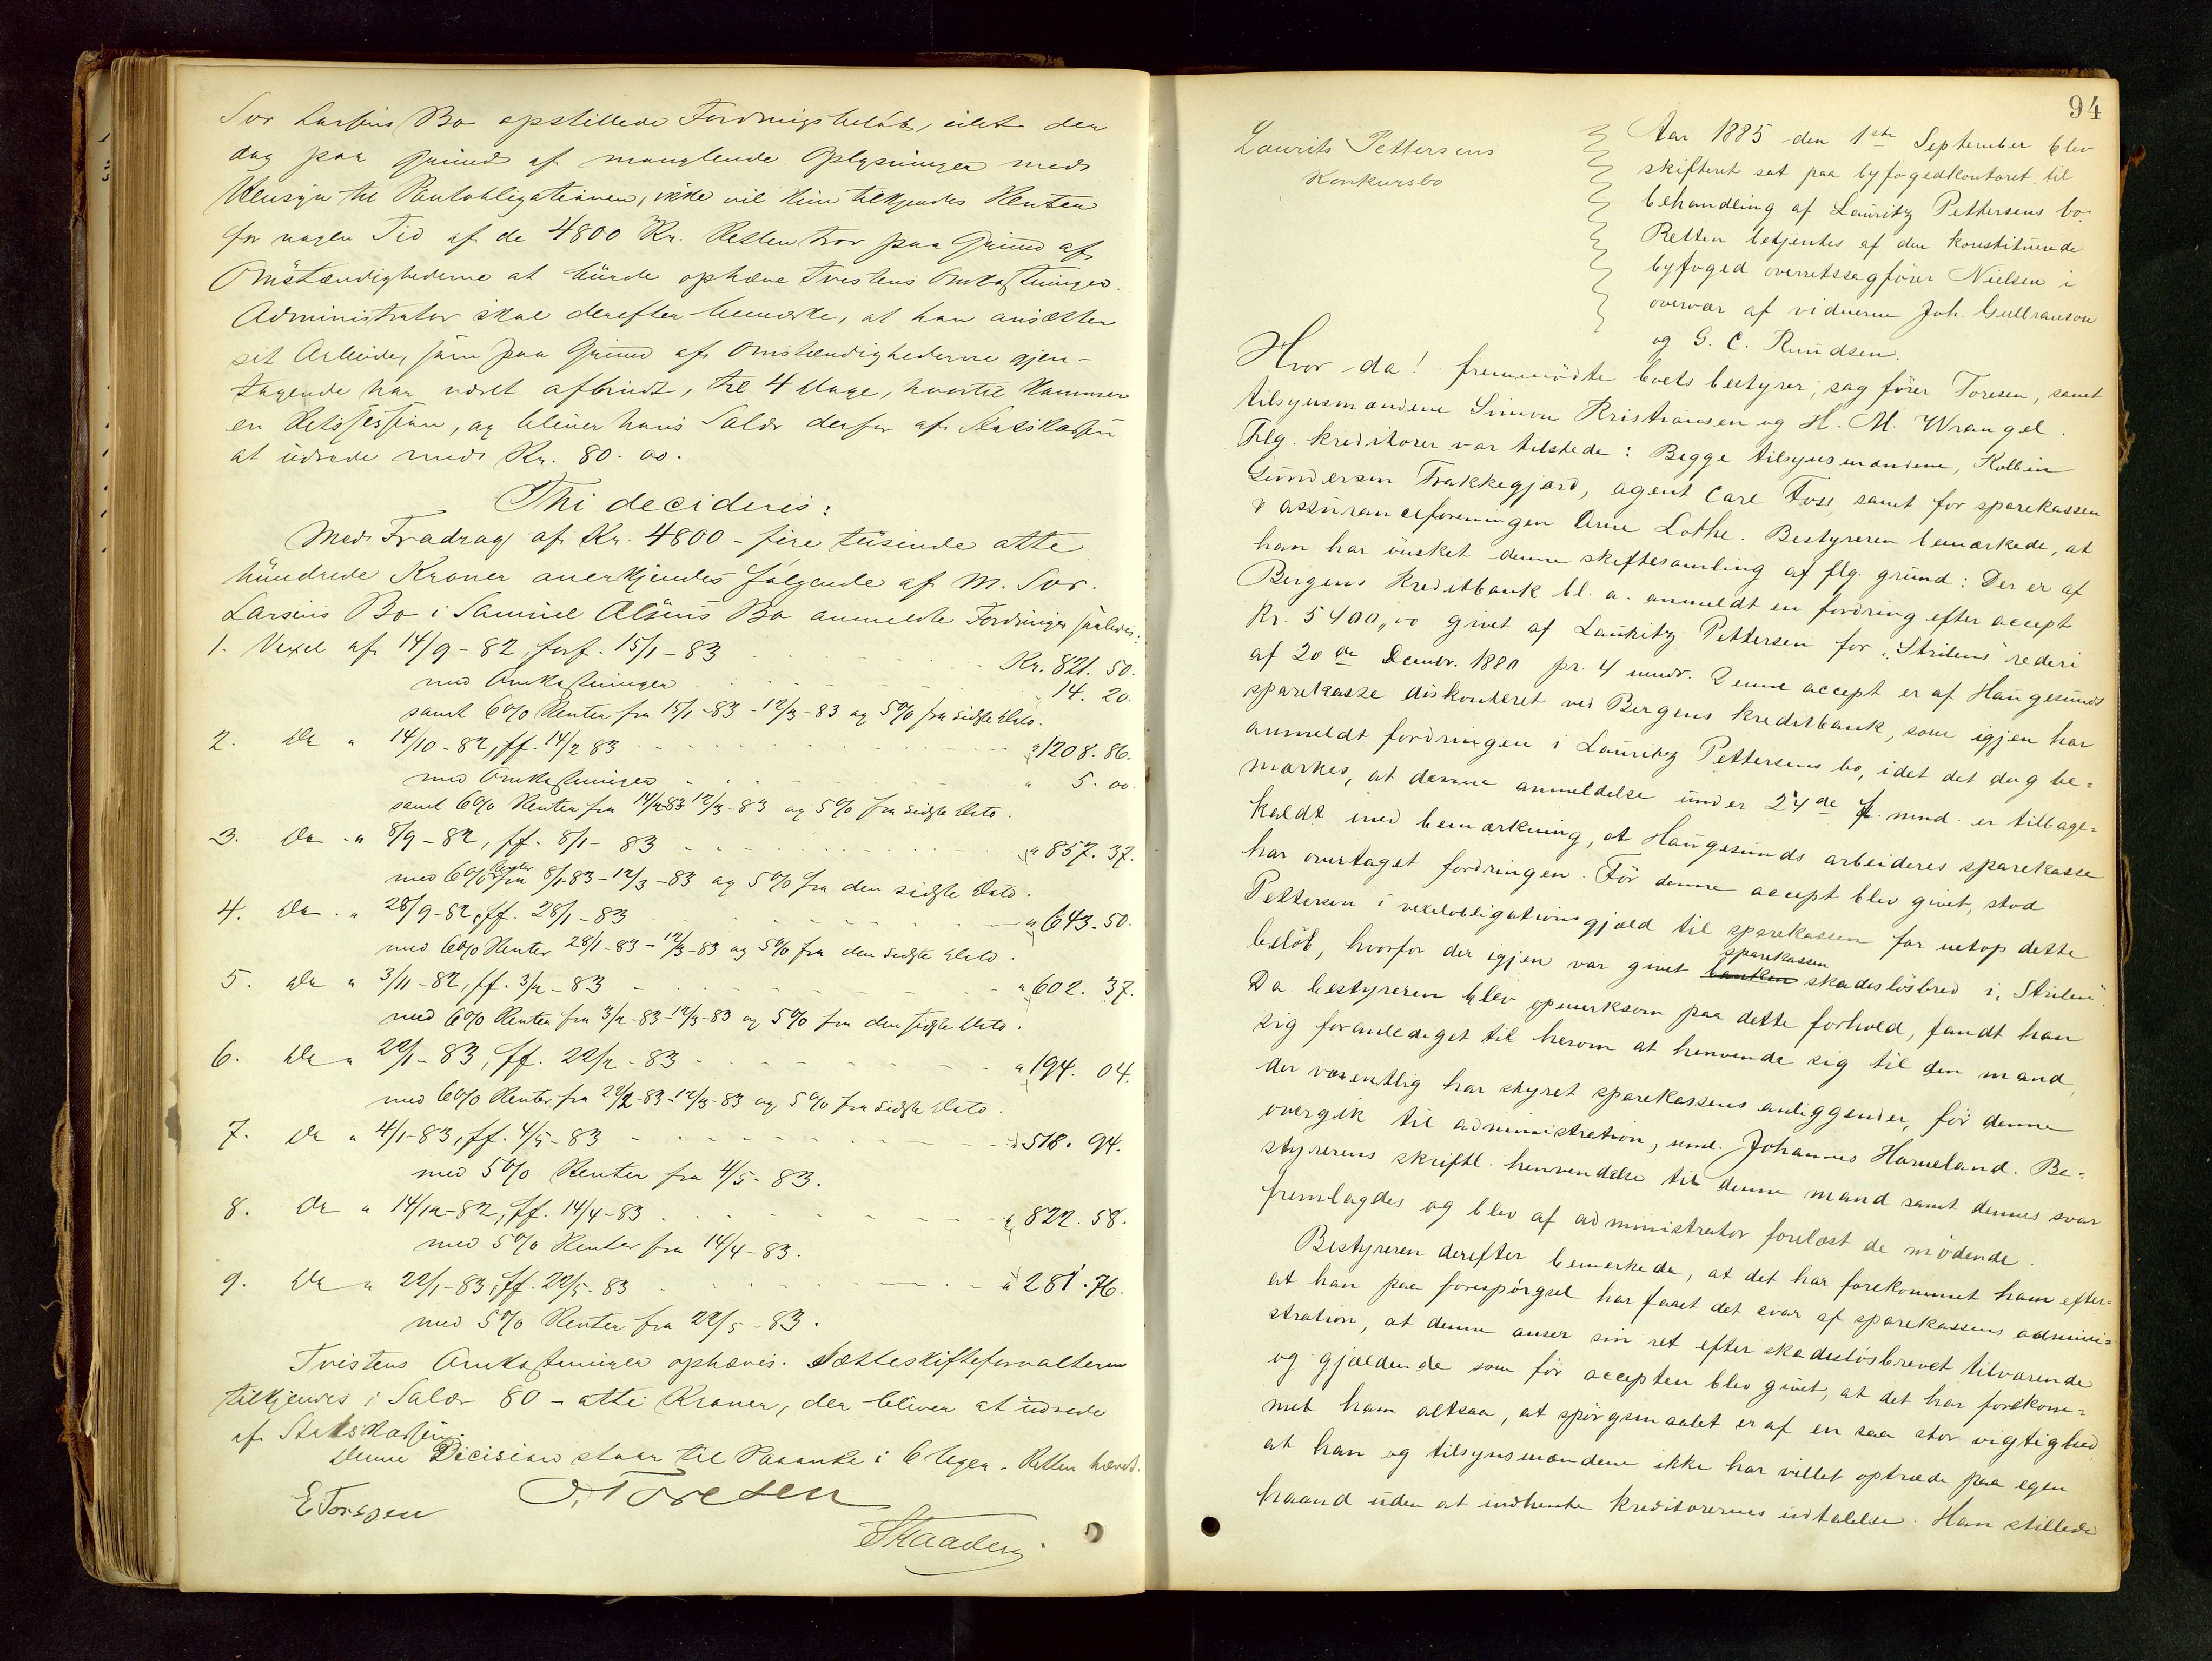 Sør Larsens Bo opstillede Fordringsbeløb, idet der
dog paa Grund af manglende Oplysninger med
Hensyn til Pantobligationen, ikke vil kunne tilkjendes Renter
for nogen Tid af de 4800 Kr. Retten tror paa Grund af
Omstændighederne at burde ophæve Tvistens Omkostninger.
Administrator skal derefter bemærke, at han ansætter
sit Arbeide, som paa Grund af Omstændighederne gjen-
tagende har været afbrudt, til 4 Dage, hvortil kommer
en Retssession, og bliver hans Salær derfor af Statskassen
at udrede med Kr. 80.00.
Thi decideres:
Med Fradrag af Kr. 4800 - fire tusinde otte
hundrede Kroner anerkjendes følgende af M. Sør.
Larsens Bo i Samuel Olsens Bo anmeldte Fordringer saaledes:
1. Vexel af 14/9-82, forf. 15/1-83 Kr. 821. 50.
med Omkostninger " 14. 20.
samt 6% Renter fra 15/1-83-12/3-83 og 5% fra sidste Dato.
2. Do " 14/10-82, ff. 14/2 83 " 1208. 86.
med Omkostninger " 5. 00.
samt 6% Renter fra 14/2-83 12/3-83 og 5% fra sidste Dato.
3. Do " 8/9-82, ff. 8/1-83 " 857. 37.
med 6% Renter fra 8/1-83-12/3-83 og 5% fra den sidste Dato.
4. Do " 28/9-82, ff. 28/1-83 " 643. 50.
med 6% Renter 28/1-83-12/3-83 og 5% fra den sidste Dato.
5. Do " 3/11-82, ff. 3/2-83 " 602. 37.
med 6% Renter fra 3/2-83-12/3-83 og 5% fra den sidste Dato.
6. Do " 22/1-83, ff. 22/2-83 " 194. 04.
med 6% Renter fra 22/2-83-12/3-83 og 5% fra sidste Dato.
7. Do " 4/1-83, ff. 4/5-83 " 518. 94.
med 5% Renter fra 4/5-83.
8. Do " 14/12-82, ff. 14/4-83 " 822. 58.
med 5% Renter fra 14/4-83.
9. Do " 22/1-83, ff. 22/5-83 " 281. 76.
med 5% Renter fra 22/5-83.
Tvistens Omkostninger ophæves. Sætteskifteforvalteren
tilkjendes i Salær 80 - otti Kroner, der bliver at udrede
af Statskassen.
Denne Decision staar til Paaanke i 6 Uger. Retten hævet.
E Toresen O. Toresen
Skaadery
94
Laurits Pettersens
Konkursbo
Aar 1885 den 1ste September blev
skifteret sat paa byfogedkontoret til
behandling af Lauritz Pettersens bo.
Retten betjentes af den konstituerede
byfoged overretssagfører Nielsen i
overvær af vidnerne Joh. Gulbranson
og G. C. Knudsen.
Hvor da! fremmødte boets bestyrer, sagfører Toresen, samt
tilsynsmændene Simon Kristiansen og H. M. Wrangel.
Flg. kreditorer var tilstede: Begge tilsynsmændene, Kolbein
Gundersen Frakkegjærd, agent Carl Foss, samt for sparekassen
& assuranceforeningen Arne Lothe. Bestyreren bemærkede, at
han har ønsket denne skiftesamling af flg. grund: Der er af
Bergens Kreditbank bl. a. anmeldt en fordring efter accept
Kr. 5400,00 givet af Lauritz Pettersen for "Strilens" rederi
af 20de Decmbr. 1880 pr. 4 mndr. Denne accept er af Haugesunds
sparekasse diskonteret ved Bergens kreditbank, som igjen har
anmeldt fordringen i Lauritz Pettersens bo, idet det dog be=
mærkes, at denne anmeldelse under 24de f. mnd. er tilbage=
kaldt med bemærkning, at Haugesunds arbeideres sparekasse
har overtaget fordringen. Før denne accept blev givet, stod
Pettersen i vexelobligationsgjæld til sparekassen for netop dette
beløb, hvorfor der igjen var givet banken sparekassen skadesløsbrev i "Strilen".
Da bestyreren blev opmerksom paa dette forhold, fandt han
sig foranlediget til herom at henvende sig til den mand,
der væsentlig har styret sparekassens anliggender, før denne
overgik til administration, nml. Johannes Hameland. Be=
styrerens skriftl. henvendelse til denne mand samt dennes svar
fremlagdes og blev af administrator forelæst de mødende.
Bestyreren derefter bemerkede, at det har forekommet ham efter=
at han paa forespørgsel har faaet det svar af sparekassens admini=
stration, at denne anser sin ret efter skadesløsbrevet tilværende
og gjældende som før accepten blev givet, at det har forekom=
met ham altsaa, at spørgsmaalet er af en saa stor vigtighed
at han og tilsynsmændene ikke har villet optræde paa egen
haand uden at indhente kreditorernes udtalelse. Han stillede